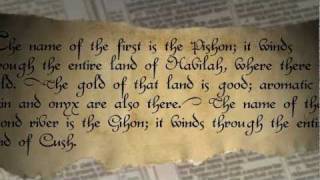 The name of the first is the Pishon; it winds
through the entire land of Havilah, where there
The gold of that land is good; aromatic
and onyx are also there. The name of the
river is the Gihon; it winds through the
of Cush.